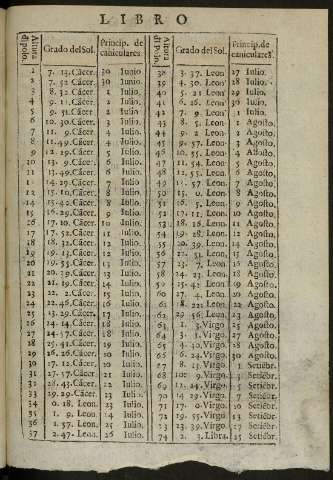 LIBRO
Altura di polo. Grado del Sol. Princip. de caniculares. Altura di polo. Grado del Sol. Princip. de caniculares.
1 7. 13. Cácer. 30 Iunio 38 3. 37. Leon 27 Iulio.
2 7. 52. Cácer. 30 Iunio. 39 4. 30. Leon 28 Iulio.
3 8. 32 Cácer. 1 Iulio. 40 5. 21 Leon 29 Iulio.
4 9. 11. Cácer. 2 Iulio. 41 6. 16. Leon 30 Iulio.
5 9. 51. Cácer. 2 Iulio. 42 7. 9. Leon 31 Iulio.
6 10. 30. Cácer. 3 Iulio. 43 8. 5. Leon 1 Agosto.
7 11. 9. Cácer. 4 Iulio. 44 9. 2 Leon 2 Agosto.
8 11. 49. Cácer. 4 Iulio. 45 9. 57. Leon 3 Agosto.
9 12. 29. Cácer. 5 Iulio. 46 10. 55. Leon 4 Agosto.
10 13. 9. Cácer. 6 Iulio. 47 11. 54. Leon 5 Agosto.
11 13. 49. Cácer. 6 Iulio. 48 12. 55. Leon 6 Agosto.
12 14. 29. Cácer. 7 Iulio. 49 13. 57. Leon 7 Agosto.
13 15. 10. Cácer. 8 Iulio. 50 15. 0. Leon 8 Agosto.
14 15. 49. Cácer. 8 Iulio. 51 16. 5. Leon 9 Agosto.
15 16. 29. Cácer. 9 Iulio. 52 17. 11. Leon 10 Agosto.
16 17. 10. Cácer. 10 Iulio. 53 18. 16. Leon 11 Agosto.
17 17. 52. Cácer. 11 Iulio. 54 19. 28. Leon 12 Agosto.
18 18. 32. Cácer. 11 Iulio. 55 20. 39. Leon 14 Agosto.
19 19. 13. Cácer. 12 Iulio. 56 21. 55. Leon 15 Agosto.
20 19. 55. Cácer. 13 Iulio. 57 23. 7. Leon 16 Agosto.
21 20. 39. Cácer. 13 Iulio. 58 24. 23. Leon 18 Agosto.
22 21. 19. Cácer. 14 Iulio. 59 25. 42. Leon 19 Agosto.
23 22. 2. Cácer. 15 Iulio. 60 27. 4. Leon 20 Agosto.
24 22. 46. Cácer. 16 Iulio. 61 28. 22. Leon 22 Agosto.
25 23. 29. Cácer. 16 Iulio. 62 29. Leon Agosto.
26 24. 14. Cácer. 17 Iulio. 63 1. 3. Virgo 25 Agosto.
27 24. 57. Cácer. 18 Iulio. 64 3. 1. Virgo 27 Agosto.
28 25. 41. Cácer. 19 Iulio. 65 4. 30. Virgo. 28 Agosto.
29 26. 26. Cácer. Iulio. 66 6. 26. Virgo. 30 Agosto.
30 27. 12. Cácer. 20 Iulio. 67 8. Virgo. 1 Setiẽbr.
31 27. 57. Cácer. 21 Iulio. 68 10. 9. Virgo. Setiẽbr.
32 28. 43. Cácer. Iulio. 69 12. 24. Virgo. 5 Setiẽbr.
33 29. 29. Cácer. Iulio. 70 14. 39. Virgo. Setiẽbr.
34 0. 18. Leon. 23 Iulio. 71 17. 0. Virgo. Setiẽbr.
35 1. 9. Leon. 24 Iulio. 72 19. 55. Virgo. Setiẽbr.
36 1. 57. Leon. 25 Iulio. 73 Virgo. Setiẽbr.
37 2. 47. Leon. 26 Iulio. 74 2. 3. Libra. 25 Setiẽbr.